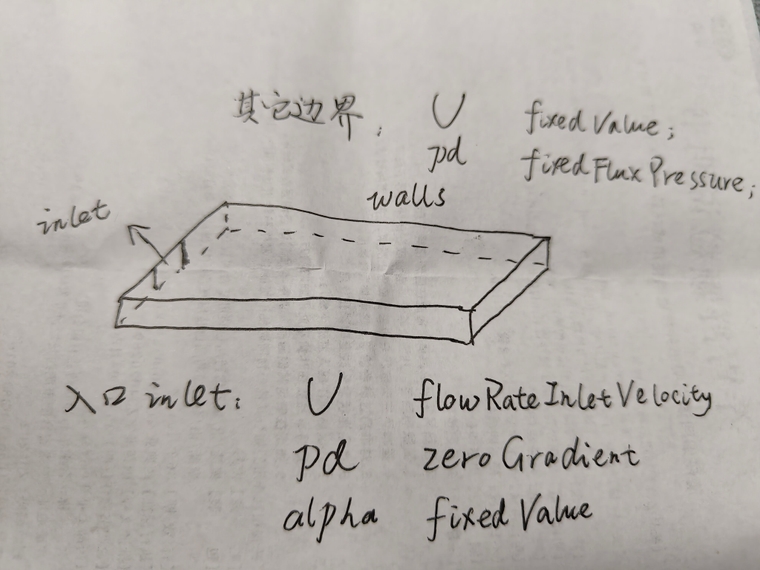 其它边界: U fixedValue;
pd fixedFluxPressure;
walls
inlet
入口 inlet: U flowRateInletVelocity
pd zeroGradient
alpha fixedValue